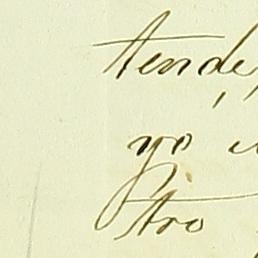 tende,
yo
tro